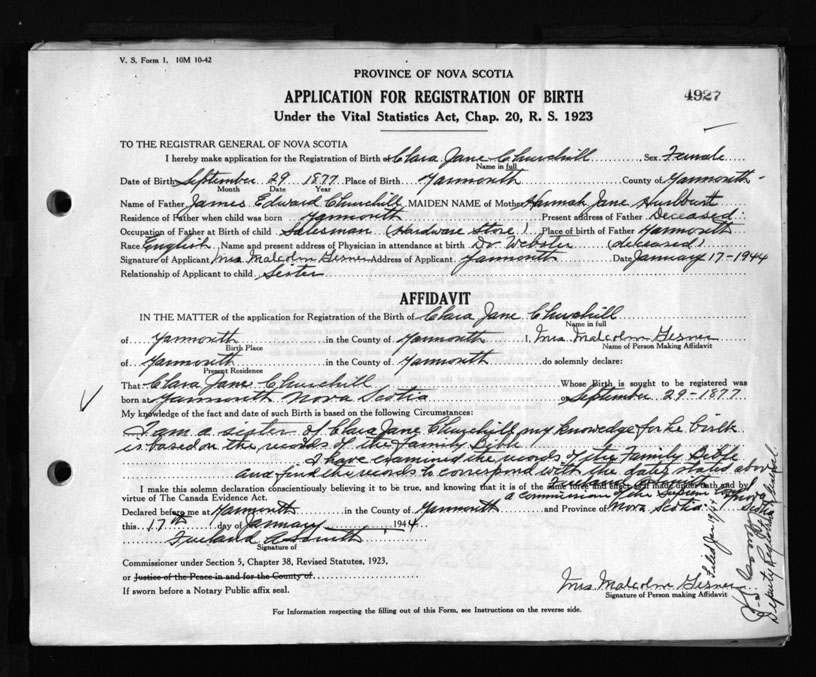 V. S. Form 1. 10M 10-42
PROVINCE OF NOVA SCOTIA
APPLICATION FOR REGISTRATION OF BIRTH
4927
Under the Vital Statistics Act, Chap. 20, R. S. 1923
TO THE REGISTRAR GENERAL OF NOVA SCOTIA
I hereby make application for the Registration of Birth of Clara Jane Churchill Sex Female
Name in full
Date of Birth September 29 1877 Place of Birth Yarmouth County of Yarmouth
Month Date Year
Name of Father James Edward Churchill MAIDEN NAME of Mother Hannah Jane Hurlburt
Residence of Father when child was born Yarmouth Present address of Father Deceased
Occupation of Father at Birth of Child Salesman (Hardware Store) Place of birth of Father Yarmouth
Race English Name and present address of Physician in attendance at birth Dr. Webster (deceased)
Signature of Applicant Mrs Malcolm Gesner Address of Applicant Yarmouth Date January 17-1944
Relationship of Applicant to child Sister
AFFIDAVIT
IN THE MATTER of the application for Registration of the Birth of Clara Jane Churchill
Name in full
of Yarmouth in the County of Yarmouth I, Mrs Malcolm Gesner
Birth Place Name of Person Making Affidavit
of Yarmouth in the County of Yarmouth do solemnly declare:
Present Residence
That Clara Jane Churchill Whose Birth is sought to be registered was
born at Yarmouth Nova Scotia September 29-1877
My knowledge of the fact and date of such Birth is based on the following Circumstances:
I am a sister of Clara Jane Churchill my knowledge for he birth
is based on the records of the Family Bible
I have examined the records of the Family Bible
and find the records to correspond with the dates stated above
I make this solemn declaration conscientiously believing it to be true, and knowing that it is of the same force and effect as if made under oath and by
virtue of The Canada Evidence Act. a commissioner of the Supreme Court Nova Scotia
Declared before me at Yarmouth in the County of Yarmouth and Province of Nova Scotia
this 17th day of January 1944
Signature of
Commissioner under Section 5, Chapter 38, Revised Statutes, 1923,
or Justice of the Peace in and for the County of
If sworn before a Notary Public affix seal.
Mrs Malcolm Gesner
Signature of Person making Affidavit
For Information respecting the filling out of this Form, see Instructions on the reverse side.
Deputy Registrar General